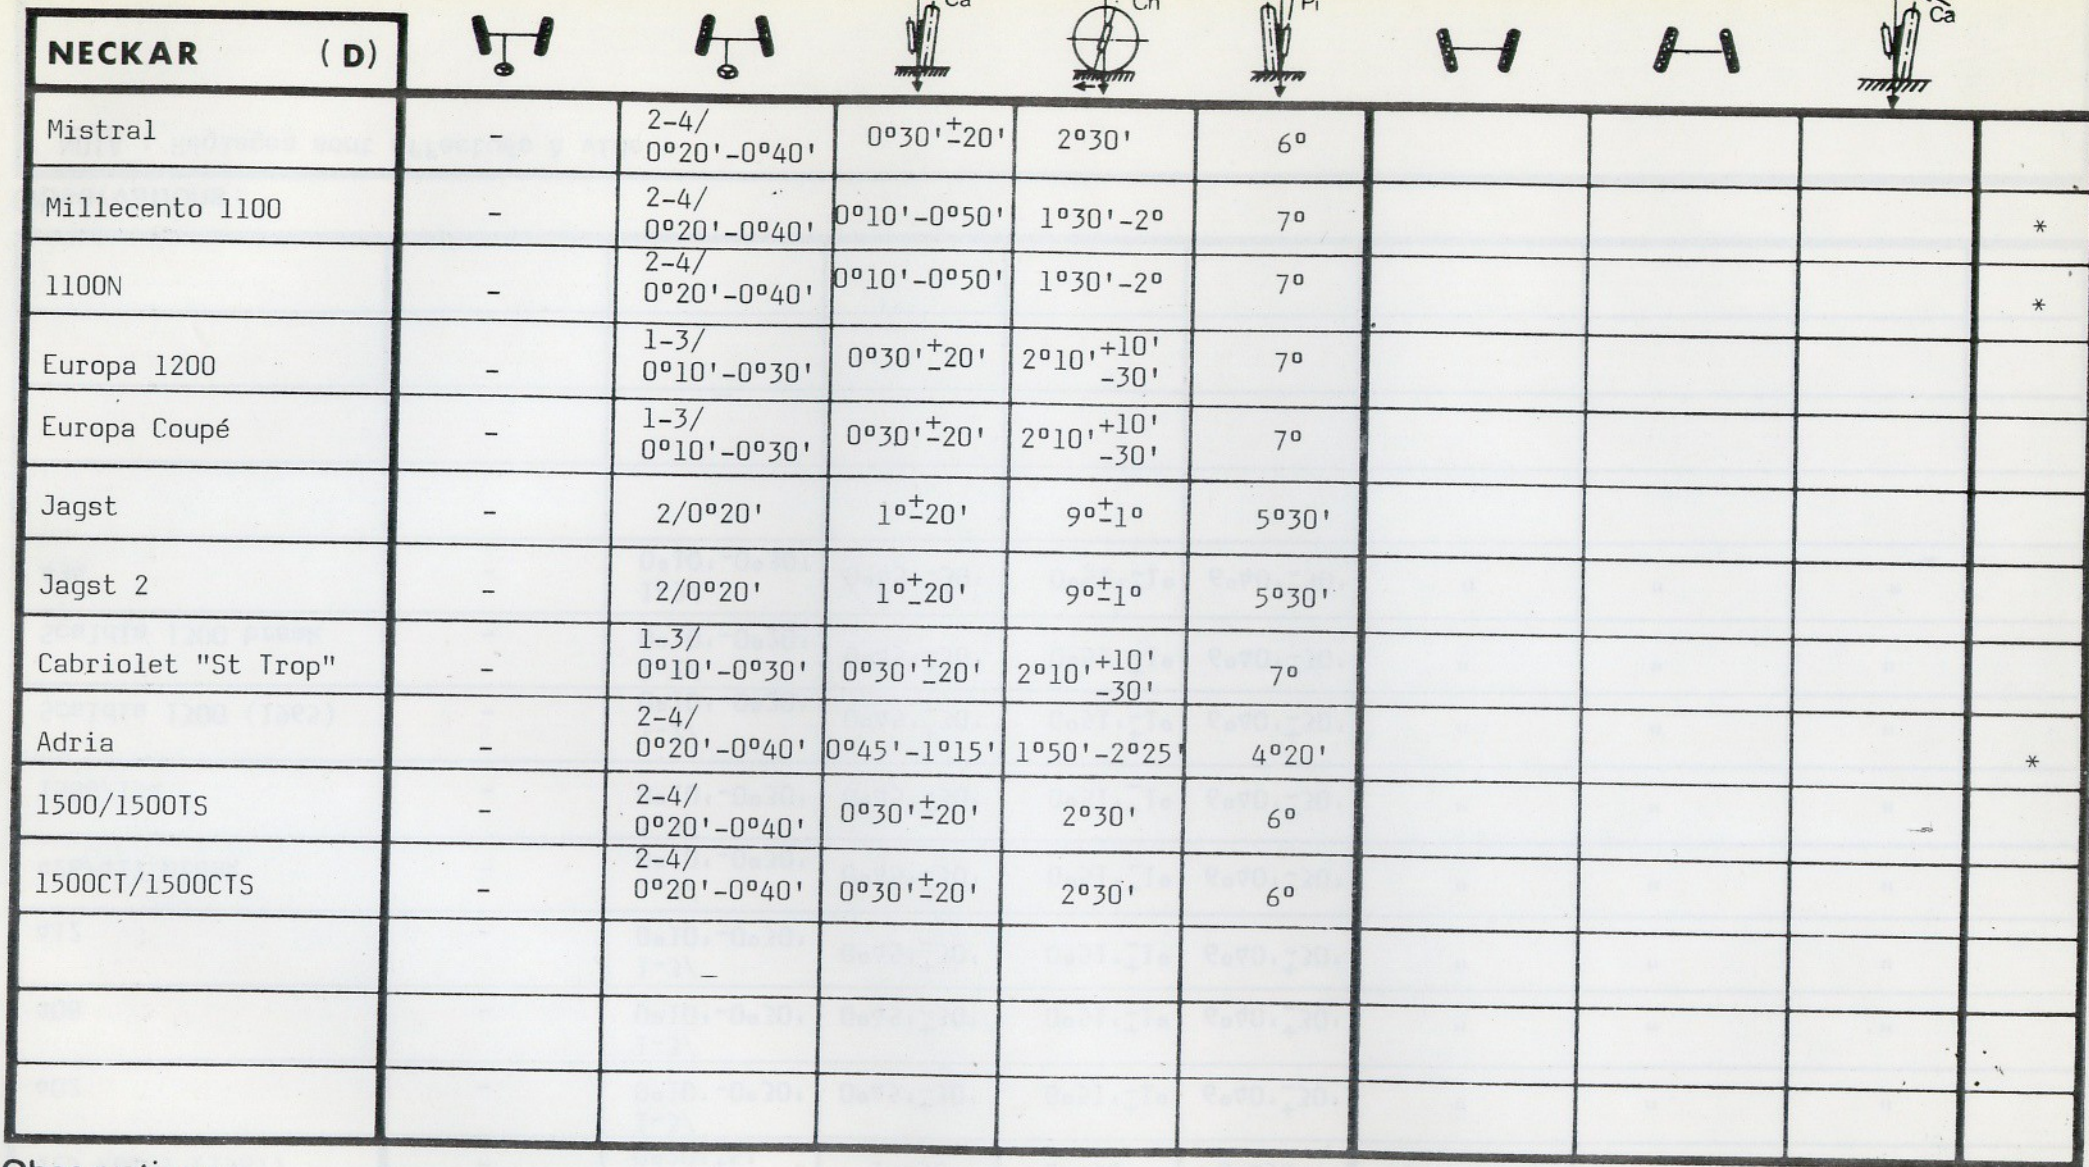 Ca Ch Pi Ca
NECKAR (D)
Mistral - 2-4/ 0º20'-0º40' 0º30'±20' 2º30' 6º
Millecento 1100 - 2-4/ 0º20'-0º40' 0º10'-0º50' 1º30'-2º 7º *
1100N - 2-4/ 0º20'-0º40' 0º10'-0º50' 1º30'-2º 7º *
Europa 1200 - 1-3/ 0º10'-0º30' 0º30'±20' 2º10'+10' -30' 7º
Europa Coupé - 1-3/ 0º10'-0º30' 0º30'±20' 2º10'+10' -30' 7º
Jagst - 2/0º20' 1º±20' 9º±1º 5º30'
Jagst 2 - 2/0º20' 1º±20' 9º±1º 5º30'
Cabriolet "St Trop" - 1-3/ 0º10'-0º30' 0º30'±20' 2º10'+10' -30' 7º
Adria - 2-4/ 0º20'-0º40' 0º45'-1º15' 1º50'-2º25' 4º20' *
1500/1500TS - 2-4/ 0º20'-0º40' 0º30'±20' 2º30' 6º
1500CT/1500CTS - 2-4/ 0º20'-0º40' 0º30'±20' 2º30' 6º